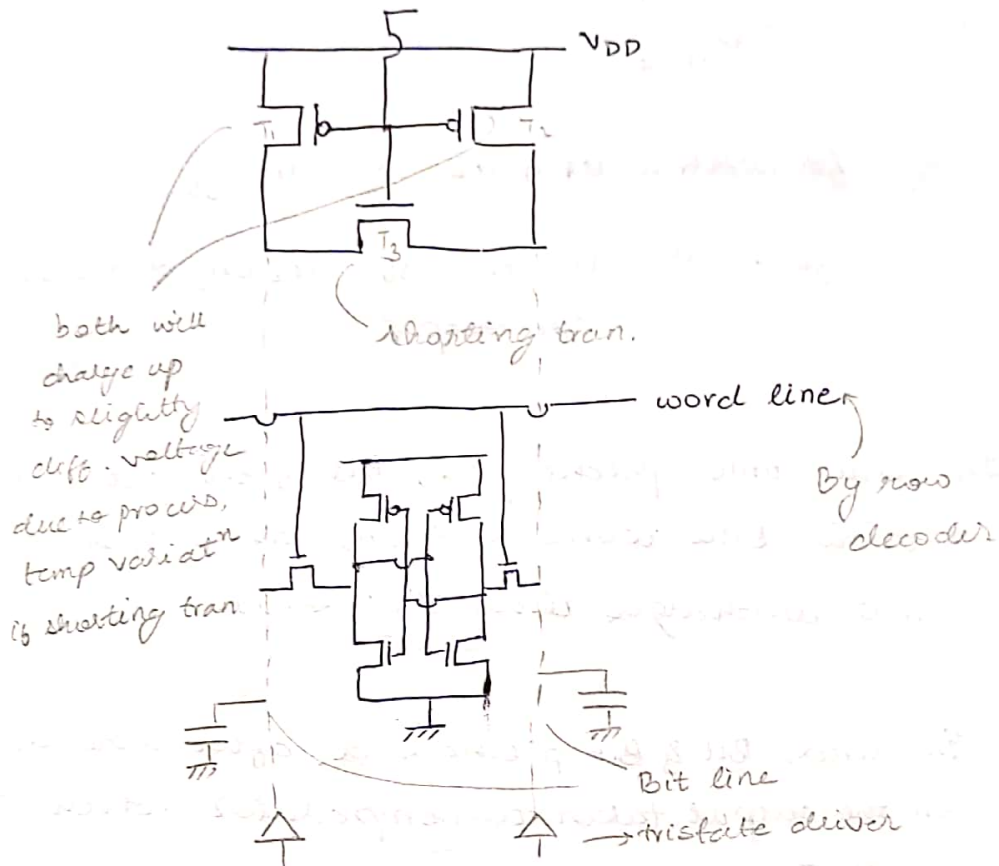 VDD
T1
T2
T3
shorting tran.
both will
charge up
to slightly
diff. voltage
due to process,
temp variatn
if shorting tran
word line
By row
decoder
Bit line
→tristate driver